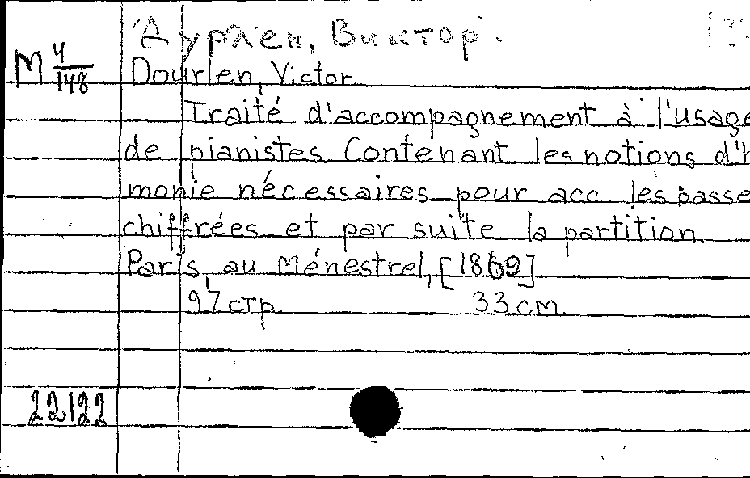 Дурлен, Виктор.
М 4/148
Dourlen, Victor
Traité d'accompagnement à l'usage
de pianistes Contenant les notions d'h
monie nécessaires pour acc les basse
chiffrées et par suite la partition
Paris, au Ménestrel, [1869]
97 стр. 33 см.
22122